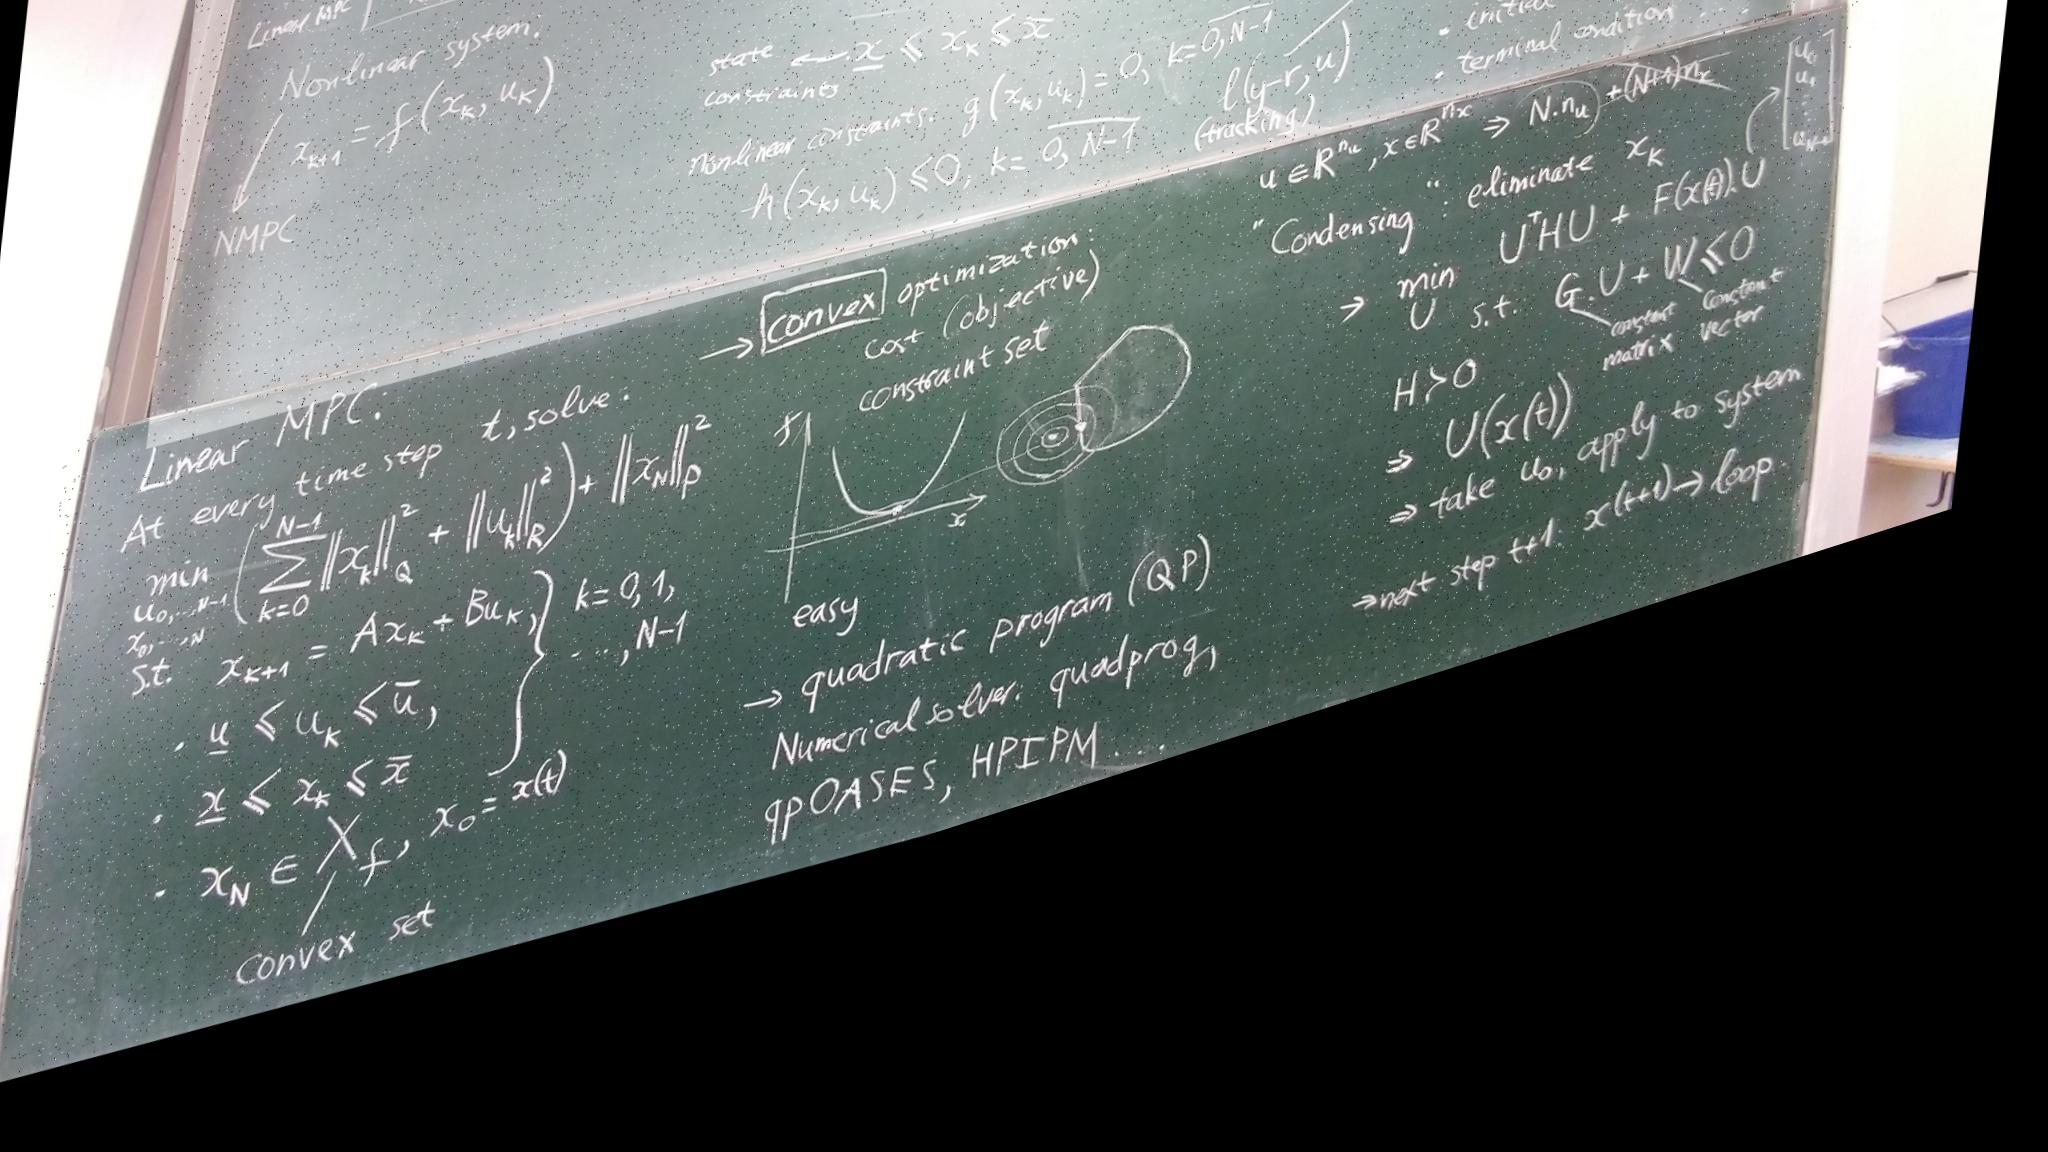 Linear MPC
Nonlinear system:
x_{k+1} = f(x_k, u_k)
NMPC
state constraints ← x̲ ≤ x_k ≤ x̄
nonlinear constraints: g(x_k, u_k) = 0, k = \overline{0, N-1}
h(x_k, u_k) ≤ 0, k = \overline{0, N-1}
l(y-r, u)
(tracking)
• initial
• terminal condition ...
Linear MPC:
At every time step t, solve:
min_{u_0,...,N-1, x_0,...,N} ( ∑_{k=0}^{N-1} ||x_k||²_Q + ||u_k||²_R ) + ||x_N||²_P
s.t. x_{k+1} = Ax_k + Bu_k, } k = 0, 1, ..., N-1
• u̲ ≤ u_k ≤ ū,
• x̲ ≤ x_k ≤ x̄
• x_N ∈ X_f, x_0 = x(t)
convex set
→ convex optimization:
cost (objective)
constraint set
f
x
easy
→ quadratic program (QP)
Numerical solver: quadprog,
qpOASES, HPIPM ...
u ∈ R^{n_u}, x ∈ R^{n_x} ⇒ N·n_u + (N+1)n_x
"Condensing": eliminate x_k
[u_0 u_1 ⋮ u_{N-1}]
→ min_U U^T H U + F(x(t))·U
s.t. G·U + W ≤ 0
constant matrix
constant vector
H > 0
⇒ U(x(t))
⇒ take u_0, apply to system
→ next step t+1: x(t+1) → loop.